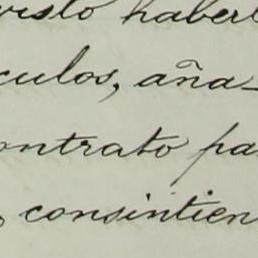 visto haberl
culos, aña-
ontrato pa
, consintien